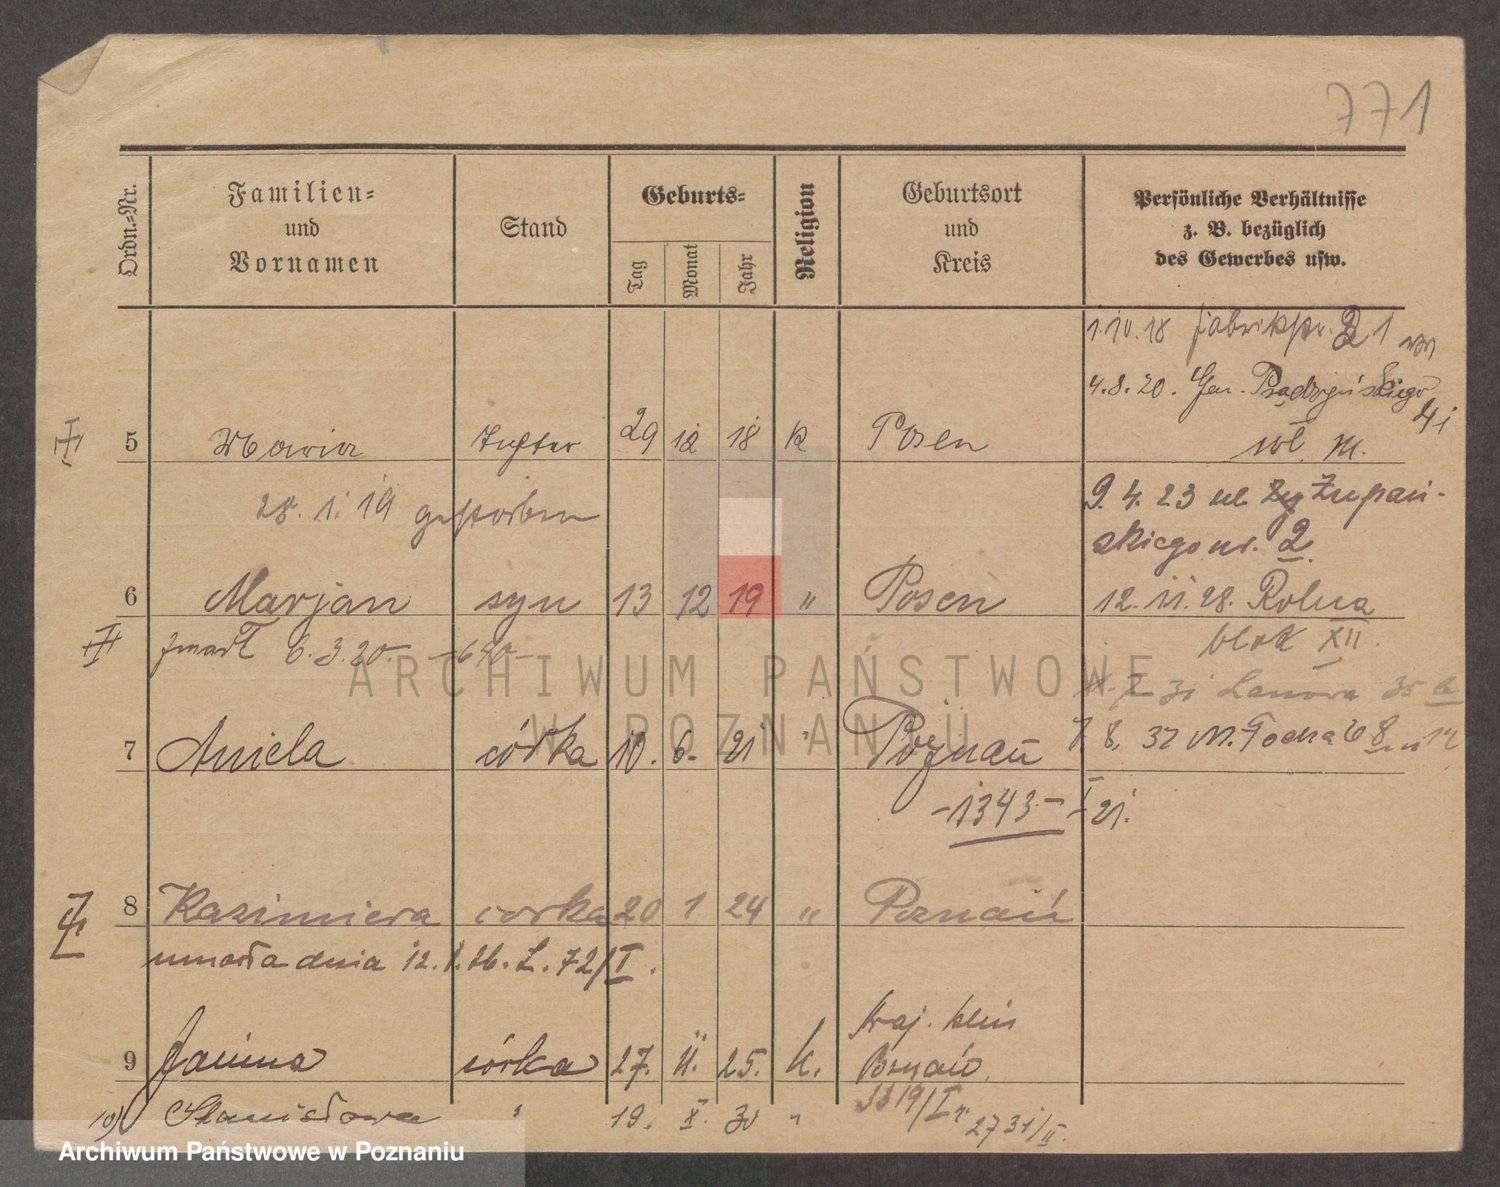 771
Ordn.=Nr.
Familien=
und
Vornamen
Stand
Geburts=
Tag
Monat
Jahr
Religion
Geburtsort
und
Kreis
Persönliche Verhältnisse
z. B. bezüglich
des Gewerbes usw.
1.10.18 Fabrikstr. 21
4.8.20. Gen. Prądzyńskiego
5 Maria Tochter 29 12 18 k Posen
28. 1. 19 gestorben
9. 4. 23 ul. Żupań-
skiego nr. 2.
6 Marjan syn 13 12 19 " Posen 12. 11. 28. Rolna
zmarł 6.3.20. -640- blok XII.
31 Lanowa 35
7 Aniela córka 10. 6. 21 " Poznań 7. 8. 37 M. Focha
-1343- I 21.
8 Kazimiera corka 20 1 24 " Poznań
umarła dnia 12. 1. 26. L. 72/I.
9 Janina córka 27. II. 25. k. Kraj. klin
Poznań
10) Stanisława " 19. X. 30 " 2731/II.
ARCHIWUM PAŃSTWOWE
W POZNANIU
Archiwum Państwowe w Poznaniu